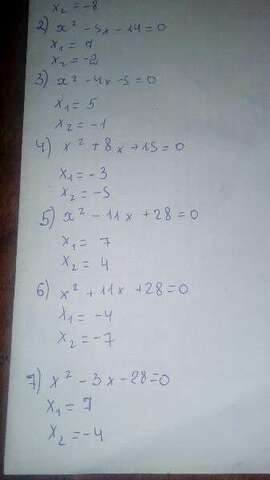 x₂ = -8
2) x² - 5x - 14 = 0
x₁ = 7
x₂ = -2
3) x² - 4x - 5 = 0
x₁ = 5
x₂ = -1
4) x² + 8x + 15 = 0
x₁ = -3
x₂ = -5
5) x² - 11x + 28 = 0
x₁ = 7
x₂ = 4
6) x² + 11x + 28 = 0
x₁ = -4
x₂ = -7
7) x² - 3x - 28 = 0
x₁ = 7
x₂ = -4